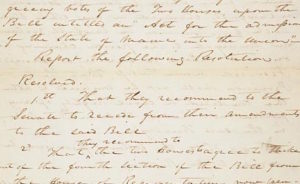 greeing votes of the Two Houses upon the
Bill entitled an Act for the admission
of the State of Maine into the Union
Report the following Resolution.
Resolved.
1st That they recommend to the
Senate to recede from their amendments
to the said Bill
they recommend to
2d That the two Houses agree to strike
out of the fourth section of the Bill from
the House of Rep now